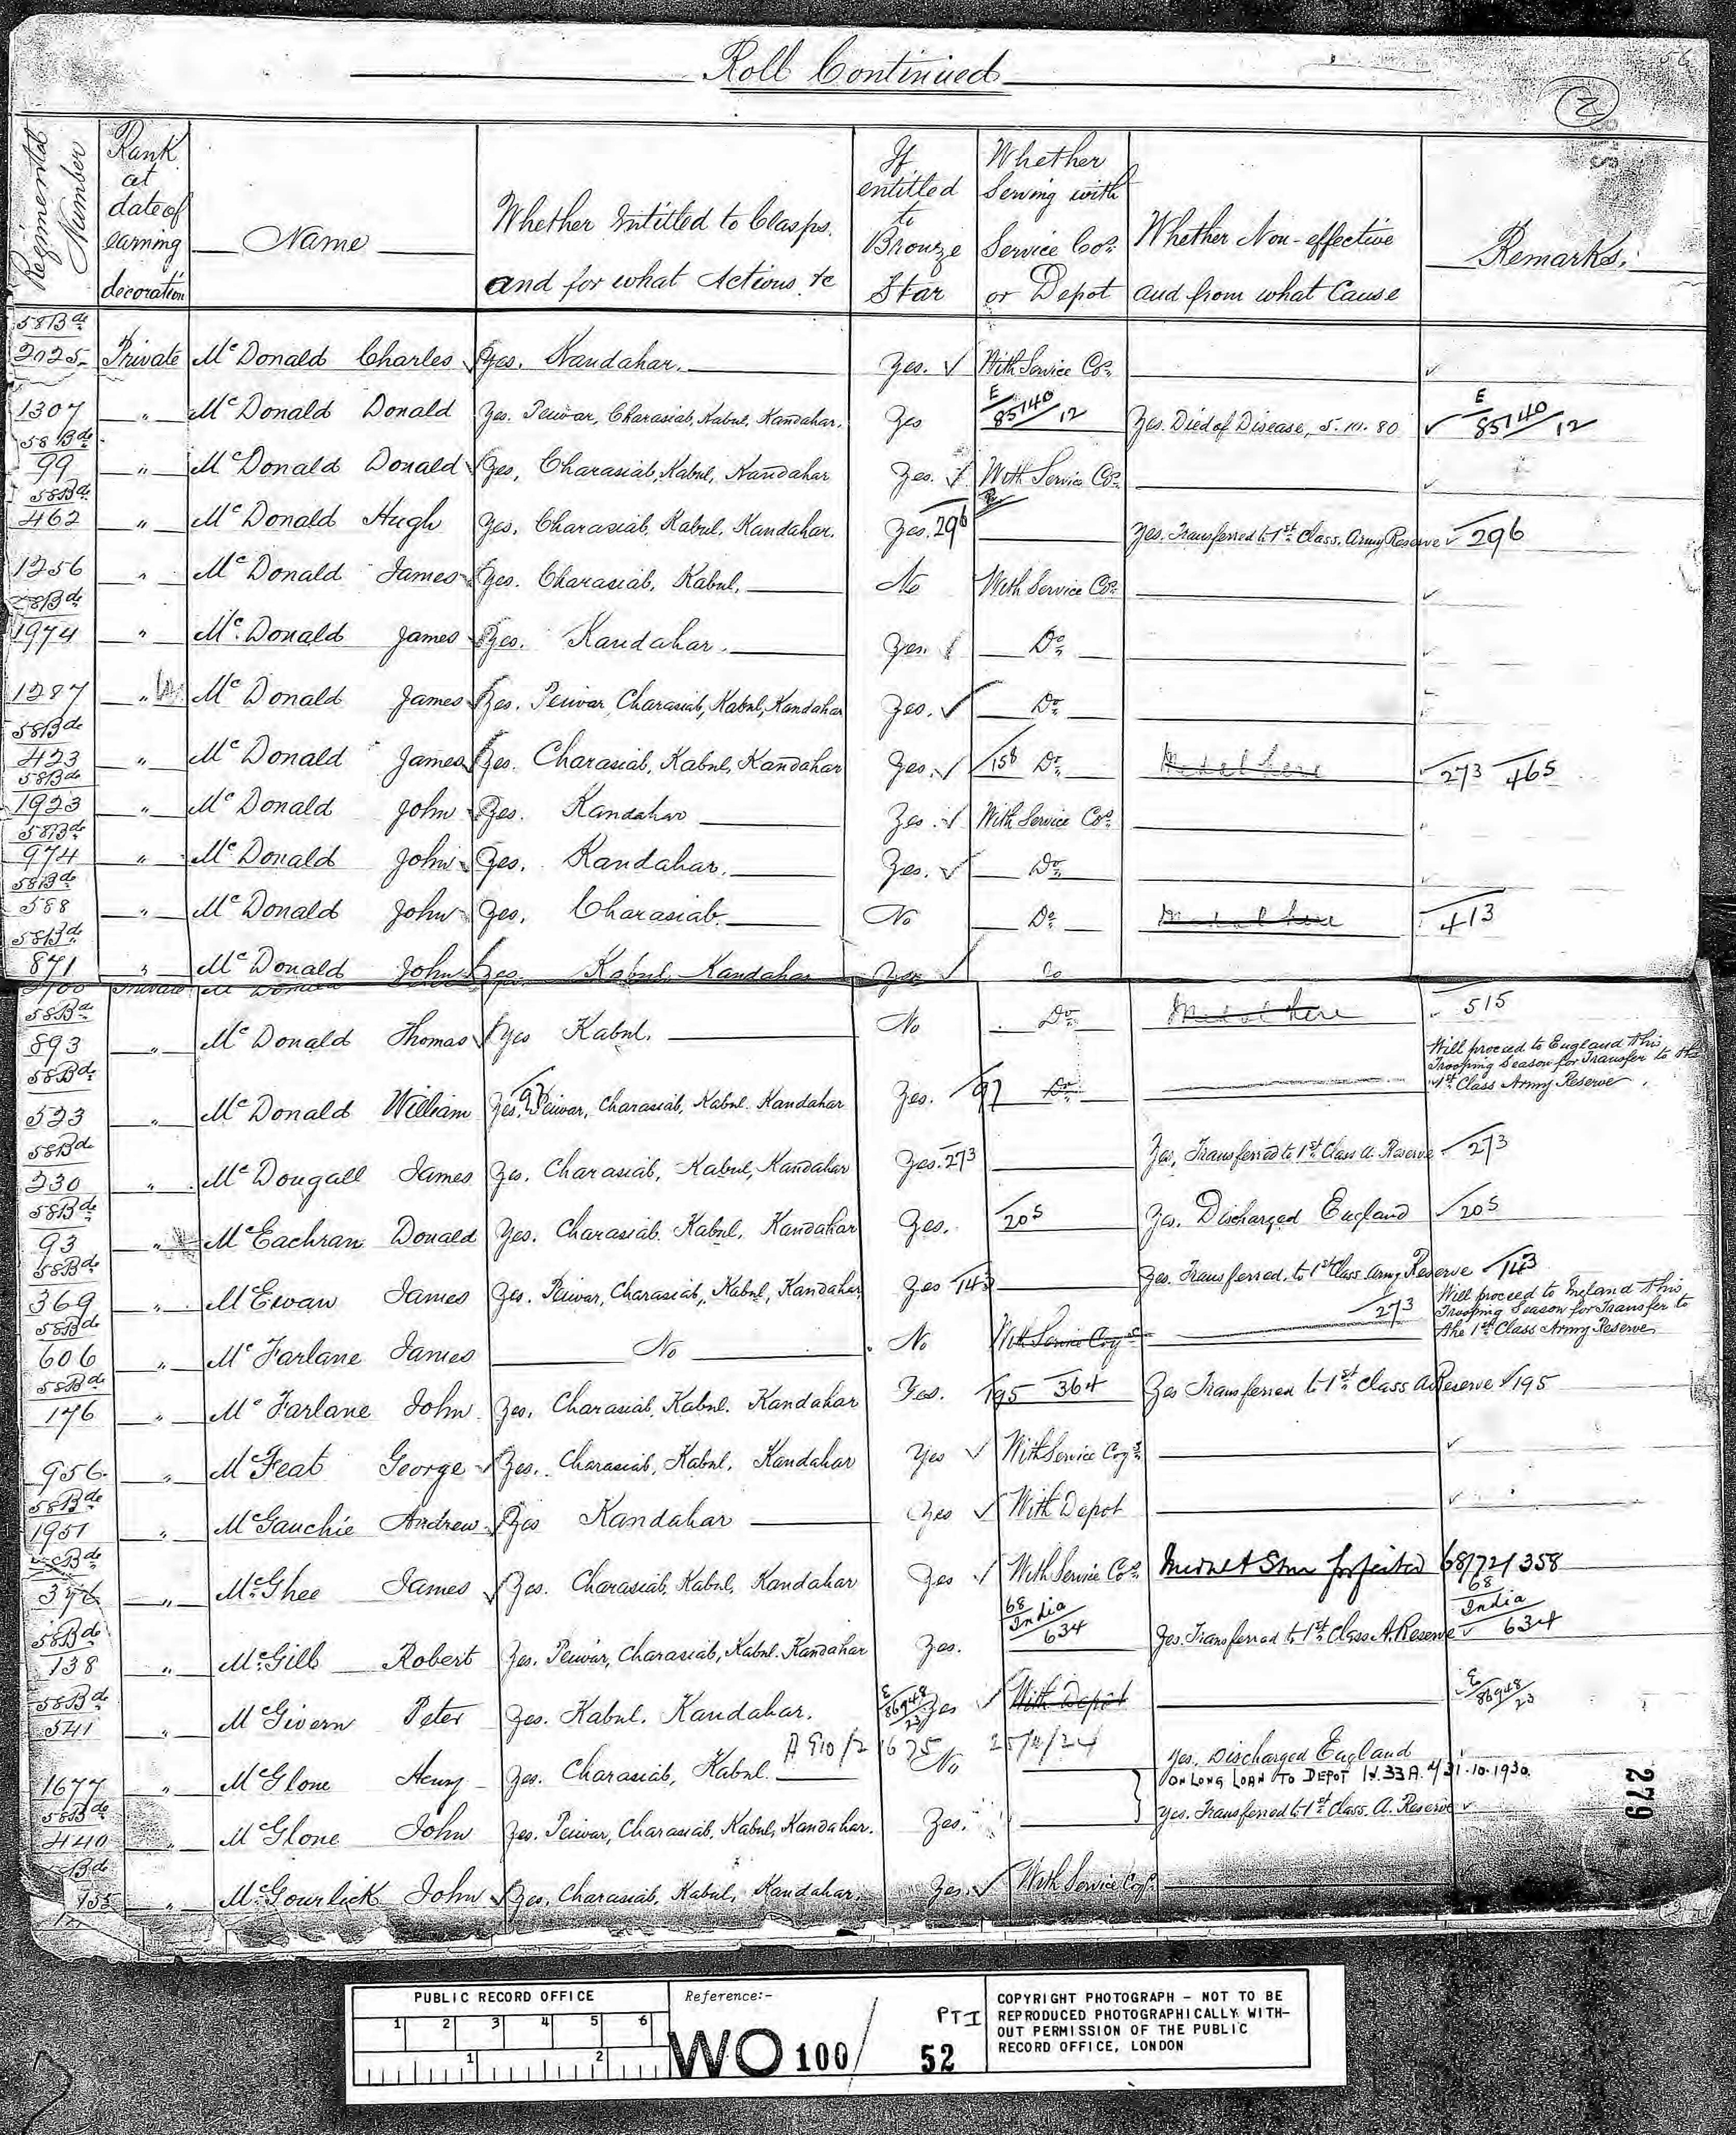 56
Roll Continued
2
Regimental Number
Rank at date of earning decoration
Name
Whether Entitled to Clasps. and for what Actions &c
If entitled to Bronze Star
Whether Serving with Service Cos. or Depot
Whether Non-effective and from what Cause
Remarks.
58Bde 2025 Private McDonald Charles Yes. Kandahar. Yes. With Service Cos.
1307 " McDonald Donald Yes. Peiwar, Charasiab, Kabul, Kandahar. Yes E 85140/12 Yes. Died of Disease, 5.111.80 E 85140/12
58Bde 99 " McDonald Donald Yes, Charasiab, Kabul, Kandahar Yes. With Service Cos.
58Bde 462 " McDonald Hugh Yes. Charasiab, Kabul, Kandahar. Yes. 296 Yes. Transferred to 1st Class. Army Reserve 296
1256 " McDonald James Yes. Charasiab, Kabul. No With Service Cos.
58Bde 1974 " McDonald James Yes. Kandahar. Yes. Do.
1287 " McDonald James Yes. Peiwar, Charasiab, Kabul, Kandahar Yes. Do.
58Bde 423 " McDonald James Yes. Charasiab, Kabul, Kandahar Yes. 158 Do. Medal here 273 465
58Bde 1923 " McDonald John Yes. Kandahar Yes. With Service Cos.
58Bde 974 " McDonald John Yes. Kandahar. Yes. Do.
58Bde 588 " McDonald John Yes. Charasiab. No Do. Medal here 413
58Bde 871 " McDonald John Yes. Kabul, Kandahar Yes
Private McDonald
58Bde 893 " McDonald Thomas Yes Kabul. No Do. Medal here 515
Will proceed to England this
Trooping Season for Transfer to the
1st Class Army Reserve.
58Bde 523 " McDonald William Yes. 97 Peiwar, Charasiab, Kabul. Kandahar Yes. 97 Do.
58Bde 230 " McDougall James Yes. Charasiab, Kabul, Kandahar Yes. 273 Yes, Transferred to 1st Class A. Reserve 273
58Bde 93 " McEachran Donald Yes. Charasiab. Kabul, Kandahar Yes. 205 Yes. Discharged England 205
58Bde 369 " McEwan James Yes. Peiwar, Charasiab, Kabul, Kandahar Yes 143 Yes. Transferred. to 1st Class Army Reserve 143
Will proceed to England this
Trooping Season for Transfer to
the 1st Class Army Reserve
58Bde 606 " McFarlane James No No With Service Coys 273
58Bde 176 " McFarlane John Yes. Charasiab, Kabul. Kandahar Yes. 195 364 Yes Transferred to 1st Class A Reserve 195
956 " McFeat George Yes. Charasiab, Kabul, Kandahar Yes With Service Coys.
58Bde 1951 " McGauchie Andrew Yes Kandahar Yes With Depot
58Bde 376 " McGhee James Yes. Charasiab, Kabul, Kandahar Yes With Service Cos. Medal & Star forfeited 68/72/358
58Bde 138 " McGill Robert Yes. Peiwar, Charasiab, Kabul. Kandahar Yes. 68/India/634 Yes. Transferred to 1st Class A. Reserve 68/India/634
58Bde 541 " McGivern Peter Yes. Kabul. Kandahar. E 86948/23 Yes With Depot E 86948/23
A 910/2 1675
1677 " McGlone Henry Yes. Charasiab, Kabul. No Yes, Discharged England
ON LONG LOAN TO DEPOT 31.10.1930.
58Bde 440 " McGlone John Yes. Peiwar, Charasiab, Kabul, Kandahar. Yes. Yes. Transferred to 1st Class. A. Reserve
Bde 155 " McGourlick John Yes. Charasiab, Kabul, Kandahar. Yes. With Service Coys.
279
PUBLIC RECORD OFFICE
1 2 3 4 5 6
1 2
Reference:-
WO 100/ 52
PT I
COPYRIGHT PHOTOGRAPH - NOT TO BE
REPRODUCED PHOTOGRAPHICALLY WITH-
OUT PERMISSION OF THE PUBLIC
RECORD OFFICE, LONDON